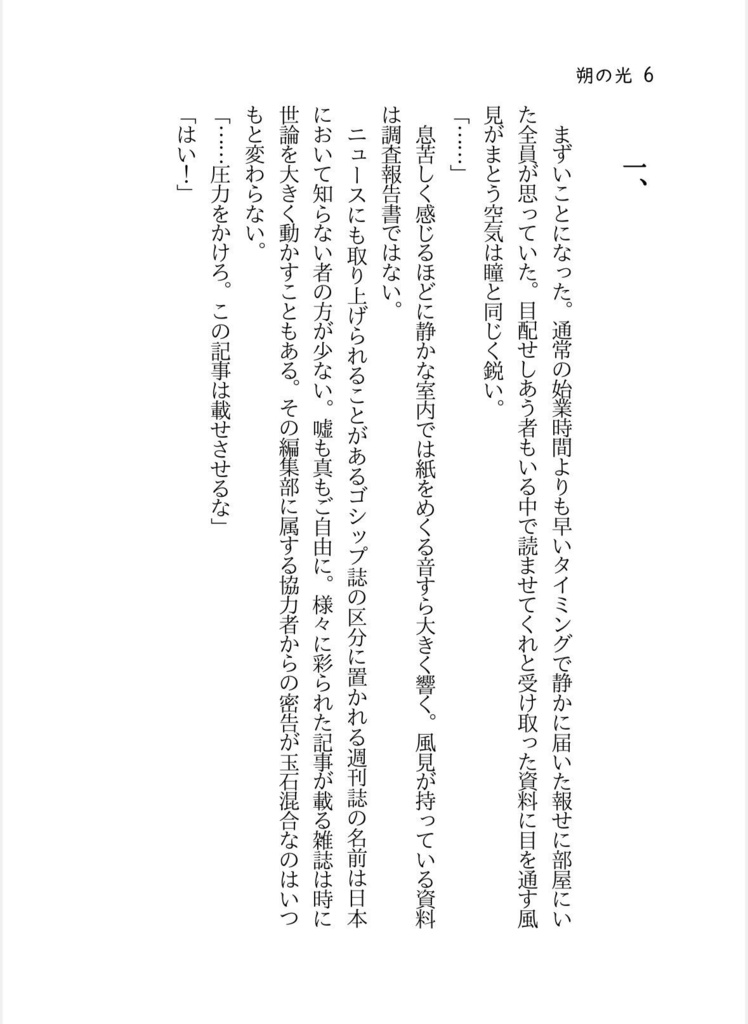 朔の光 6
一、
まずいことになった。通常の始業時間よりも早いタイミングで静かに届いた報せに部屋にい
た全員が思っていた。目配せしあう者もいる中で読ませてくれと受け取った資料に目を通す風
見がまとう空気は瞳と同じく鋭い。
「……」
息苦しく感じるほどに静かな室内では紙をめくる音すら大きく響く。風見が持っている資料
は調査報告書ではない。
ニュースにも取り上げられることがあるゴシップ誌の区分に置かれる週刊誌の名前は日本
において知らない者の方が少ない。嘘も真もご自由に。様々に彩られた記事が載る雑誌は時に
世論を大きく動かすこともある。その編集部に属する協力者からの密告が玉石混合なのはいつ
もと変わらない。
「……圧力をかけろ。この記事は載せさせるな」
「はい！」